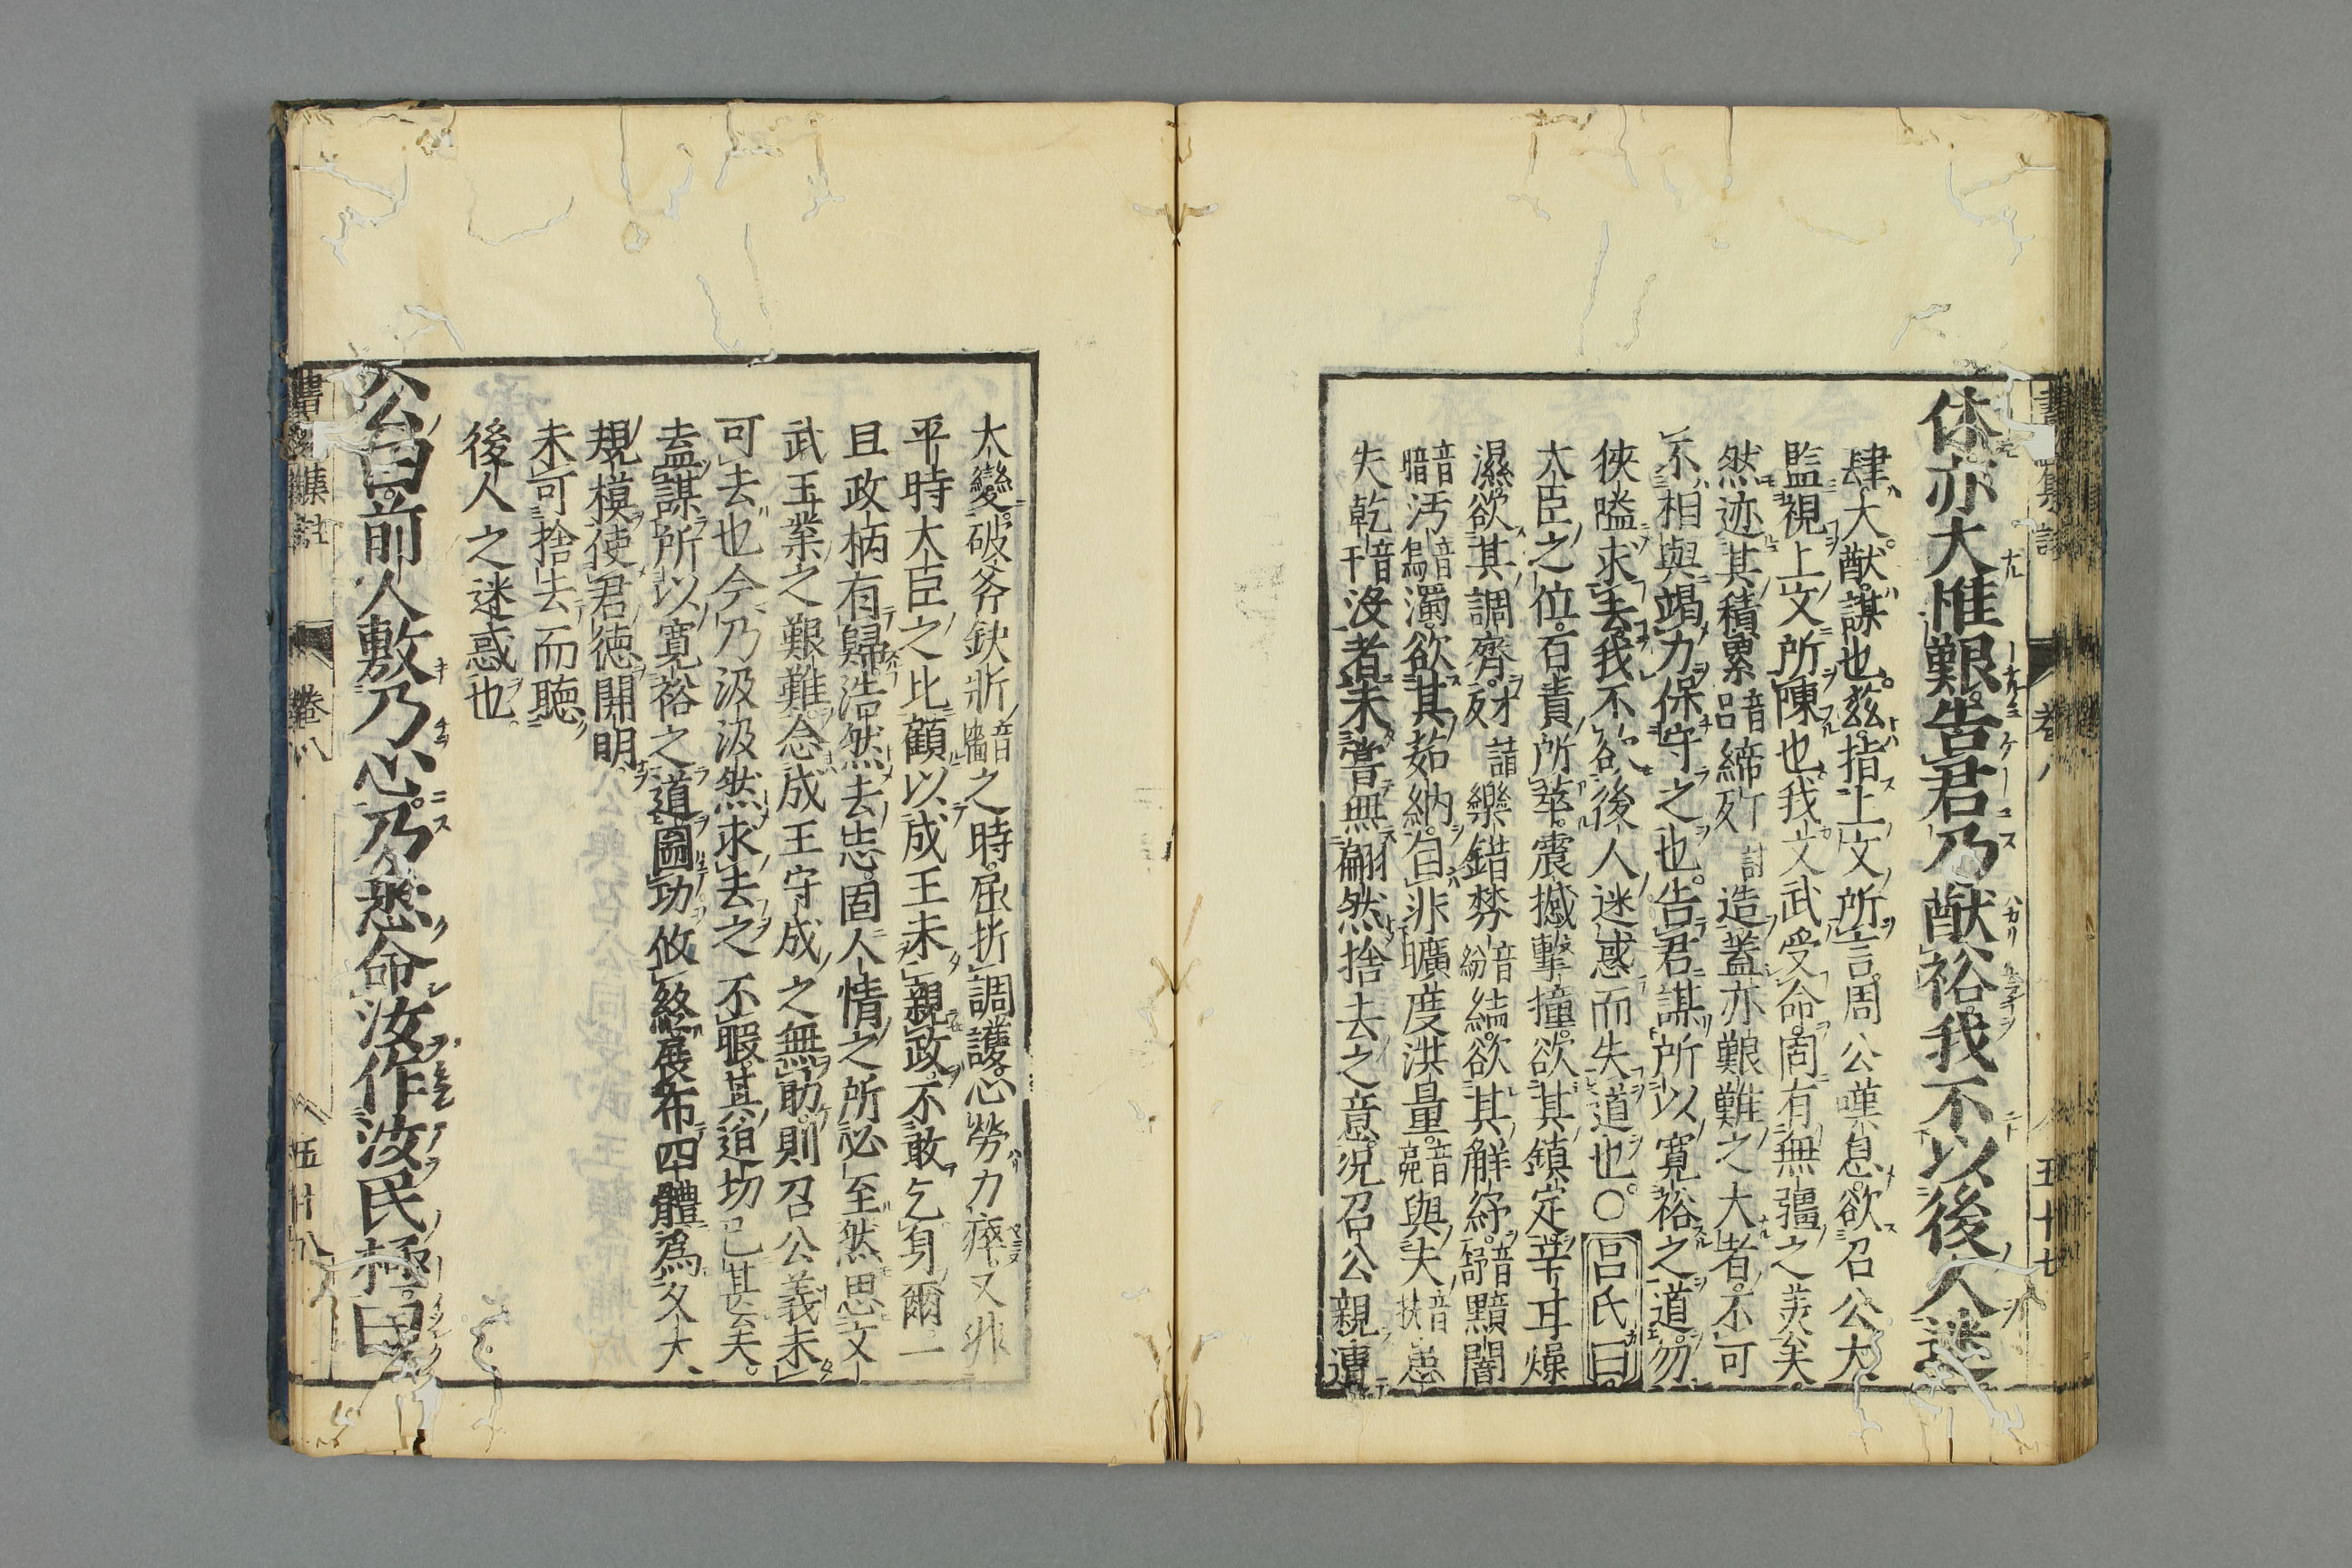 休亦大惟艱告君乃猷裕我不以後人迷
肆大猷謀也玆指上文所言周公嘆息欲召公大
監視上文所陳也我文武受命固有無疆之美矣
然迹其積累音品締歹丁計造蓋亦艱難之大者不可
不相與竭力保守之也告君謀所以寬裕之道勿
狹隘求去我不欲後人迷惑而失道也○呂氏曰
大臣之位百責所萃震撼擊撞欲其鎮定辛甘燥
濕欲其調齊才詣歹樂錯棼音紛結欲其解紓音舒黯闇
音暗汚音烏濁欲其茹納自非曠度洪量音亮與夫音扶患
失乾音干沒者未嘗無翩然捨去之意況召公親遭
大變破斧缺斨音牆之時屈折調護心勞力瘁又非
平時大臣之比顧以成王未親政不敢乞身爾一
且政柄有歸浩然去志固人情之所必至然思文
武王業之艱難念成王守成之無助則召公義未
可去也今乃汲汲然求去之不暇其迫切已甚夫
盍謀所以寛裕之道圖功攸終展布四體為久大
規模使君德開明
未可捨去而聴
後人之迷惑也
公曰前人敷乃心乃悉命汝作汝民極曰
書 集註 卷八 五十八